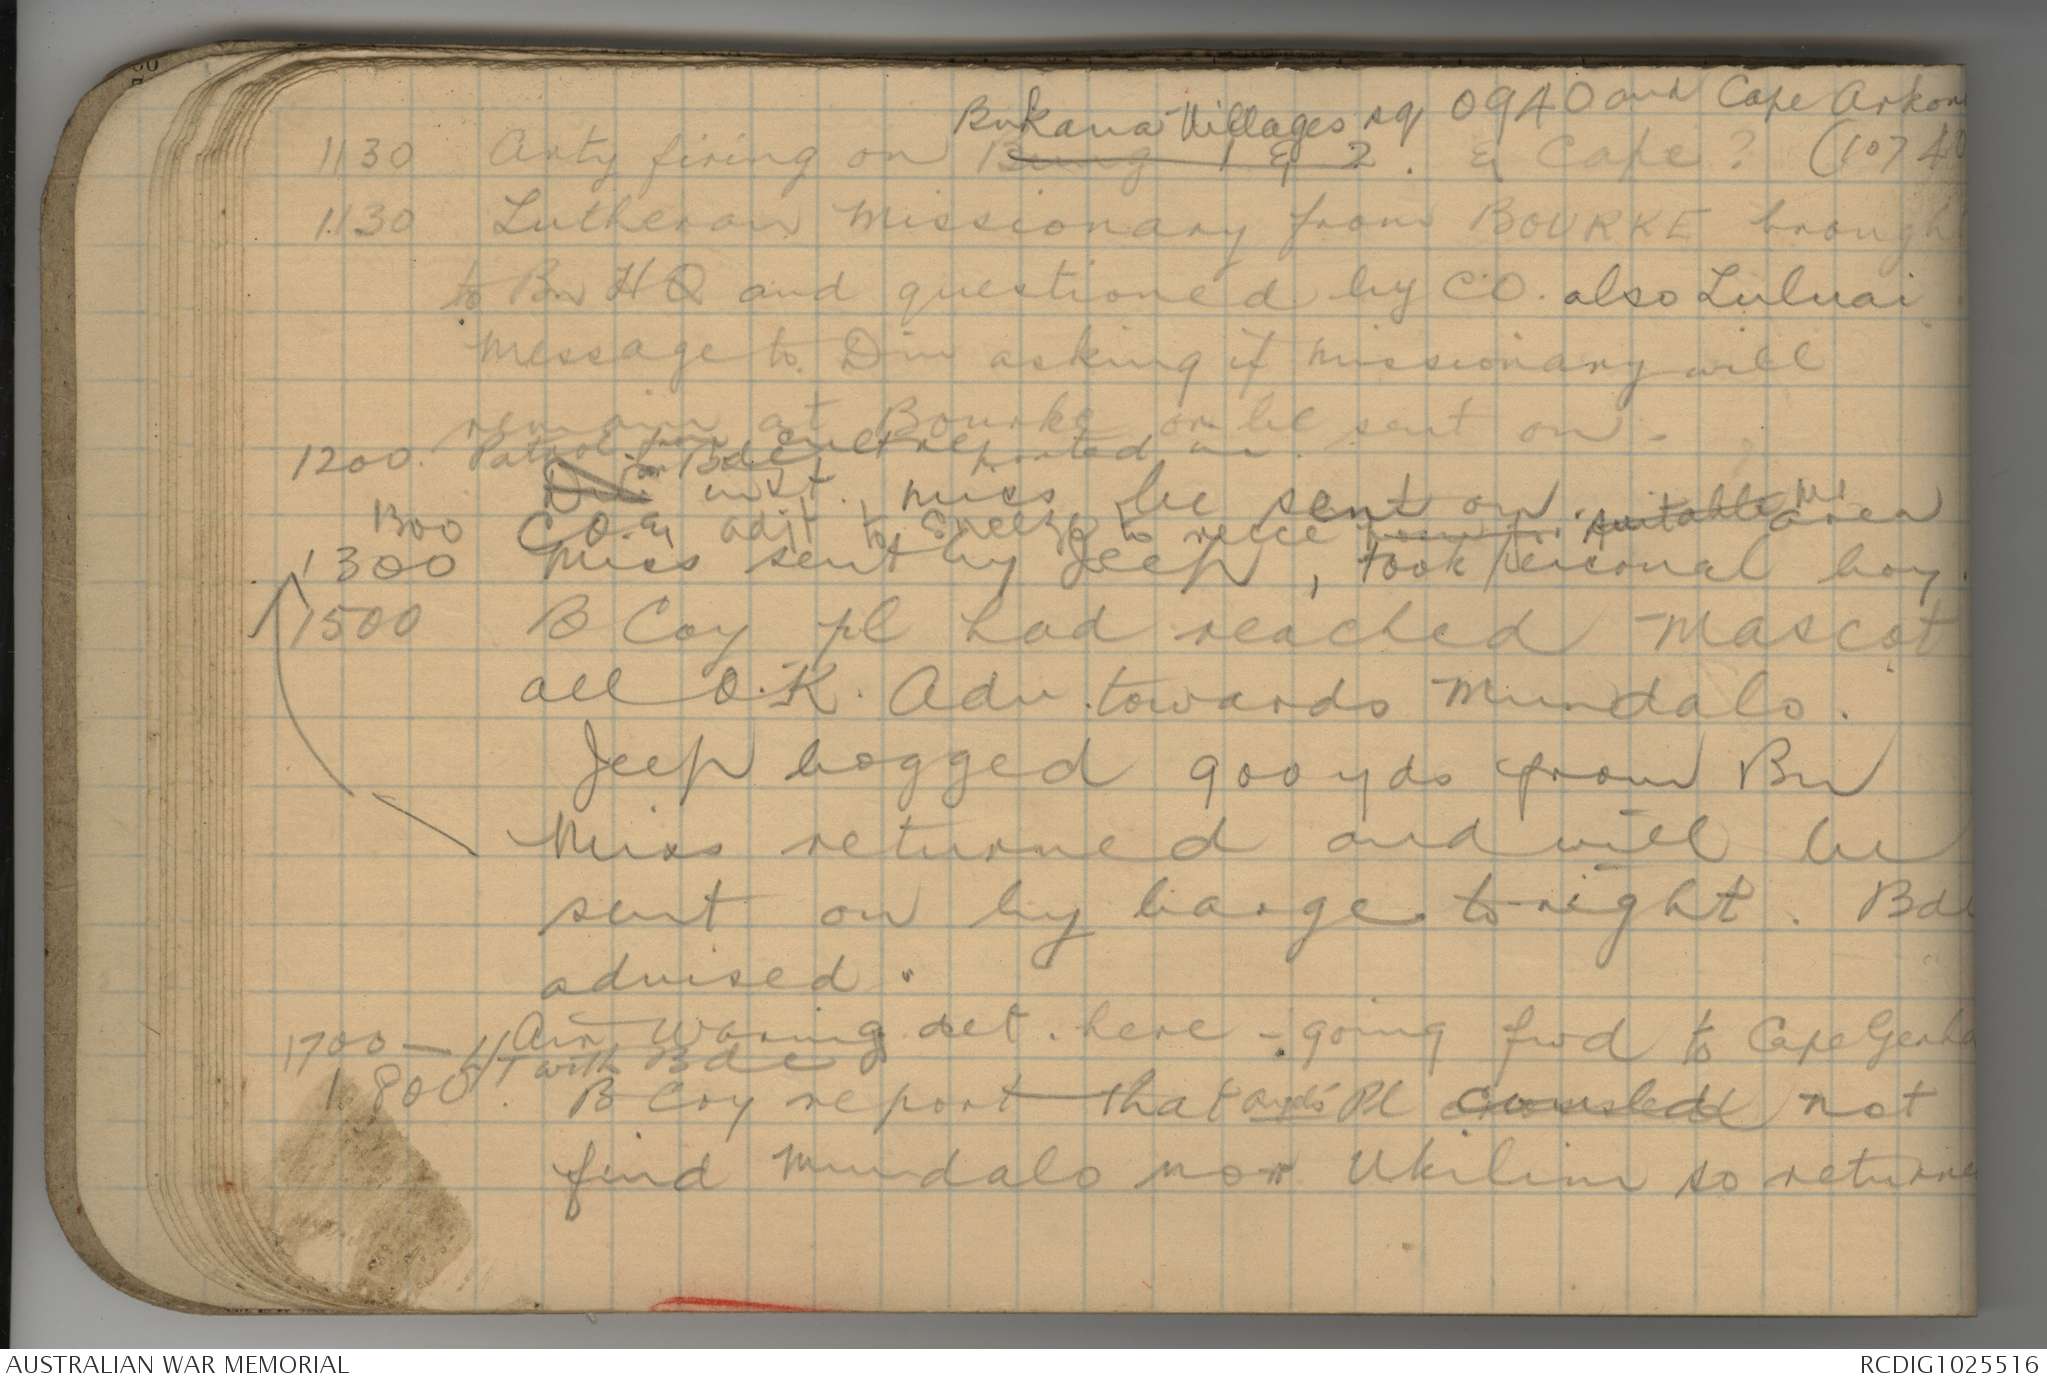 Bukaua Villages sq 0940 and Cape Arkon
1130 Arty firing on Bung 1 & 2. & Cape? (10740
1130 Lutheran Missionary from BOURKE brough
to Bn HQ and questioned by CO. also Luluai
Message to Div asking if missionary will
remain at Bourke or be sent on.
1200. Patrol from reported in.
Div or Bde inst. miss be sent on.
1300 C.O. & adjt to Sneezo to recce suitable area
1300 Miss sent by Jeep, took personal boy.
1500 B Coy pl had reached Mascot
all O.K. Adv. towards Mundalo.
Jeep bogged 900 yds from Bn
Miss returned and will be
sent on by barge to-night. Bde
advised.
Air Waring det. here - going fwd to Cape Gerha
1700 — L/T with Bde
1800. B Coy report that Pl not
find Mundalo nor Ukilim so returne
AUSTRALIAN WAR MEMORIAL
RCDIG1025516